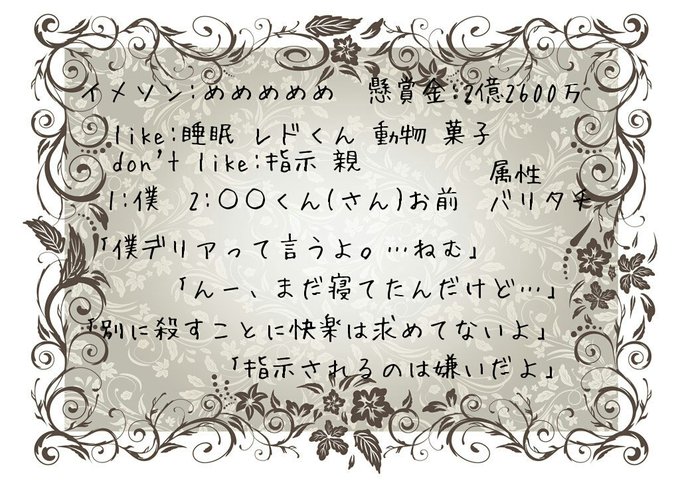 イメソン:めめめめめ 懸賞金:2億2600万
like:睡眠 レドくん 動物 菓子
don't like:指示 親
属性
1:僕 2:〇〇くん(さん)お前 バリタチ
「僕デリアって言うよ。…ねむ」
「んー、まだ寝てたんだけど…」
「別に殺すことに快楽は求めてないよ」
「指示されるのは嫌いだよ」